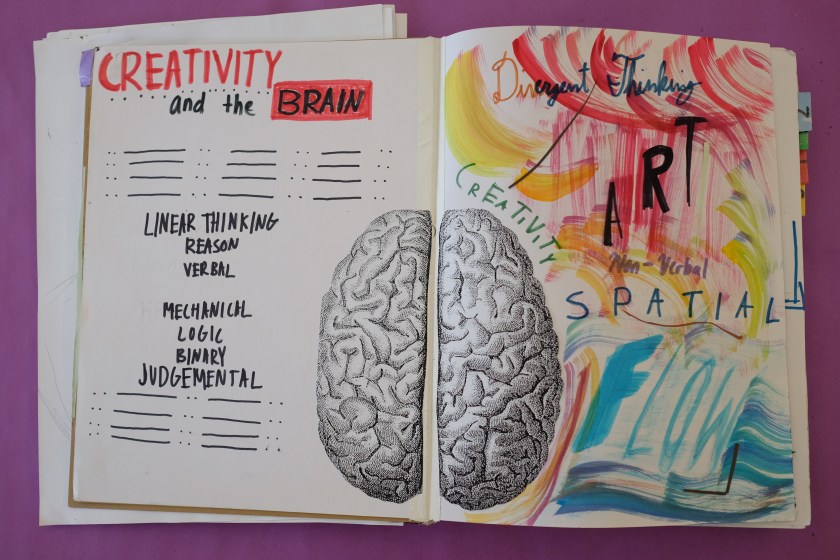 CREATIVITY
and the BRAIN
LINEAR THINKING
REASON
VERBAL
MECHANICAL
LOGIC
BINARY
JUDGEMENTAL
Divergent Thinking
ART
CREATIVITY
Non-Verbal
SPATIAL
FLOW